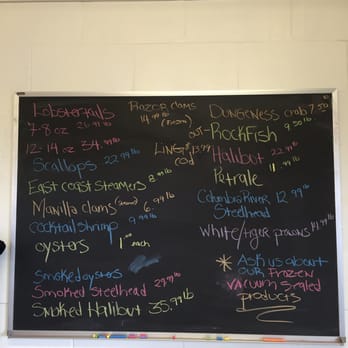 Lobstertails
7-8 oz 26.99 lb
12-14 oz 34.99 lb
Scallops 22.99 lb
East coast steamers 8.99 lb
Manilla clams 6.99 lb
cocktail shrimp 9.99 lb
oysters 1.00 each
Smoked oysters
Smoked Steelhead 29.99 lb
Smoked Halibut 35.99 lb
Razor clams
14.99 lb (frozen)
Lingcod 13.99
Dungeness crab 7.50
Rockfish 9.50 lb
Halibut 22.99 lb
Petrale 11.99 lb
Columbia River 12.99 lb
Steelhead
White/tiger prawns 14.99 lb
* Ask us about
our Frozen
Vacuum Sealed
products